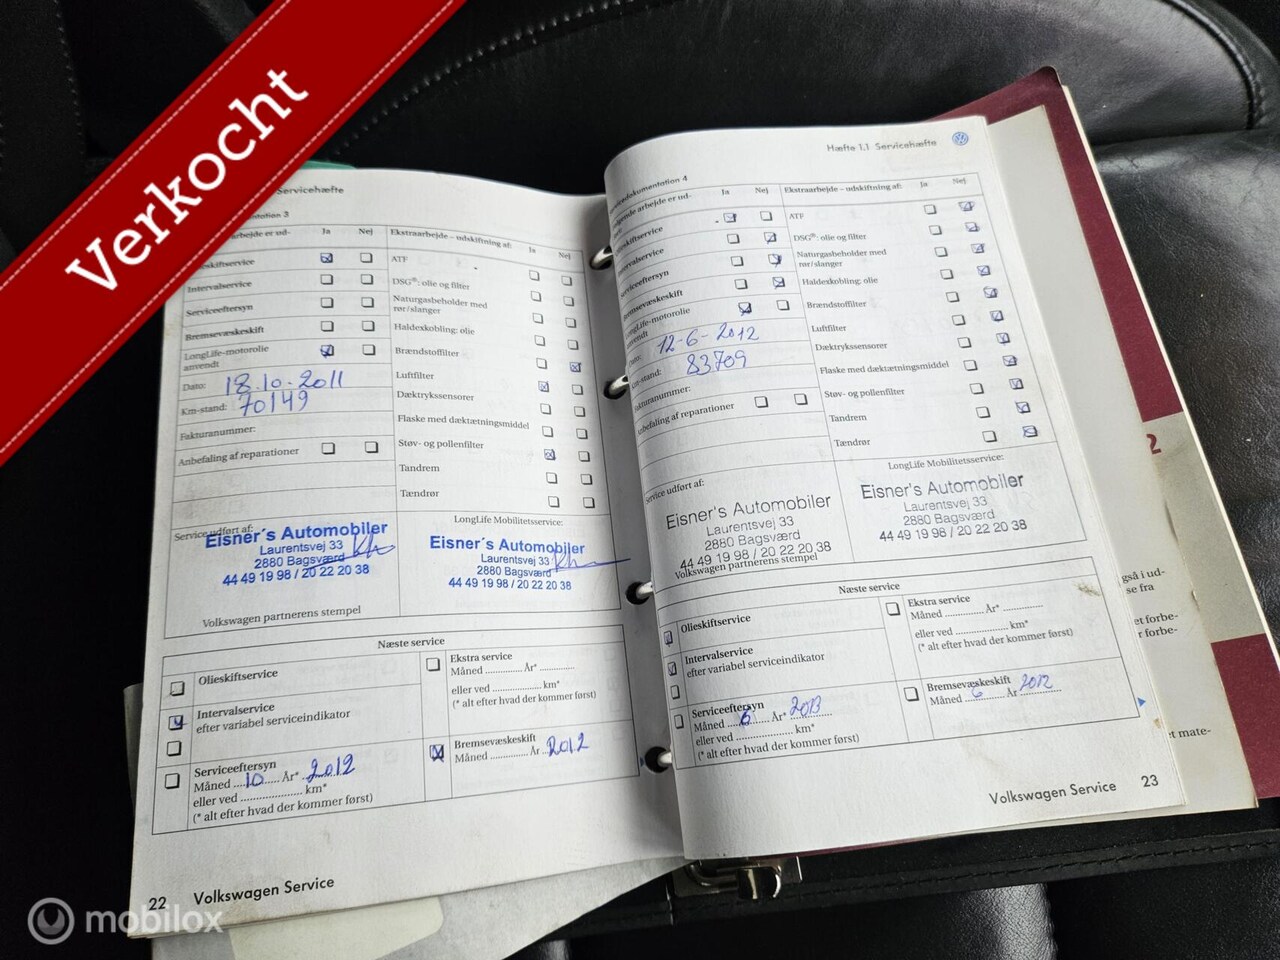 Verkocht
Servicehæfte
Ja Nej Ekstraarbejde – udskiftning af: Ja Nej
ATF
Intervalservice
DSG®: olie og filter
Serviceeftersyn
Naturgasbeholder med
rør/slanger
Bremsevæskeskift
Haldexkobling: olie
LongLife-motorolie
anvendt
Brændstoffilter
Dato: 18.10.2011
Luftfilter
Km-stand: 70149
Dæktryksensorer
Fakturanummer:
Flaske med dæktætningsmiddel
Anbefaling af reparationer
Støv- og pollenfilter
Tandrem
Tændrør
Service udført af:
LongLife Mobilitetsservice:
Eisner's Automobiler
Laurentsvej 33
2880 Bagsværd
44 49 19 98 / 20 22 20 38
Eisner's Automobiler
Laurentsvej 33
2880 Bagsværd
44 49 19 98 / 20 22 20 38
Volkswagen partnerens stempel
Næste service
Olieskiftservice
Ekstra service
Måned ........... År* ...........
eller ved .................... km*
(* alt efter hvad der kommer først)
Intervalservice
efter variabel serviceindikator
Serviceeftersyn
Måned 10 År* 2012
eller ved .................... km*
(* alt efter hvad der kommer først)
Bremsevæskeskift
Måned ........... År 2012
22 Volkswagen Service
Hæfte 1.1 Servicehæfte
Servicedokumentation 4
Ja Nej Ekstraarbejde – udskiftning af: Ja Nej
Olieskiftservice
ATF
Intervalservice
DSG®: olie og filter
Serviceeftersyn
Naturgasbeholder med
rør/slanger
Bremsevæskeskift
Haldexkobling: olie
LongLife-motorolie
anvendt
Brændstoffilter
Dato: 12-6-2012
Luftfilter
Km-stand: 83709
Dæktrykssensorer
Fakturanummer:
Flaske med dæktætningsmiddel
Anbefaling af reparationer
Støv- og pollenfilter
Tandrem
Tændrør
Service udført af:
LongLife Mobilitetsservice:
Eisner's Automobiler
Laurentsvej 33
2880 Bagsværd
44 49 19 98 / 20 22 20 38
Eisner's Automobiler
Laurentsvej 33
2880 Bagsværd
44 49 19 98 / 20 22 20 38
Volkswagen partnerens stempel
Næste service
Olieskiftservice
Ekstra service
Måned ........... År* ...........
eller ved .................... km*
(* alt efter hvad der kommer først)
Intervalservice
efter variabel serviceindikator
Serviceeftersyn
Måned 6 År* 2013
eller ved .................... km*
(* alt efter hvad der kommer først)
Bremsevæskeskift
Måned 6 År 2012
Volkswagen Service 23
2
også i ud-
se fra
et forbe-
r forbe-
et mate-
mobilox